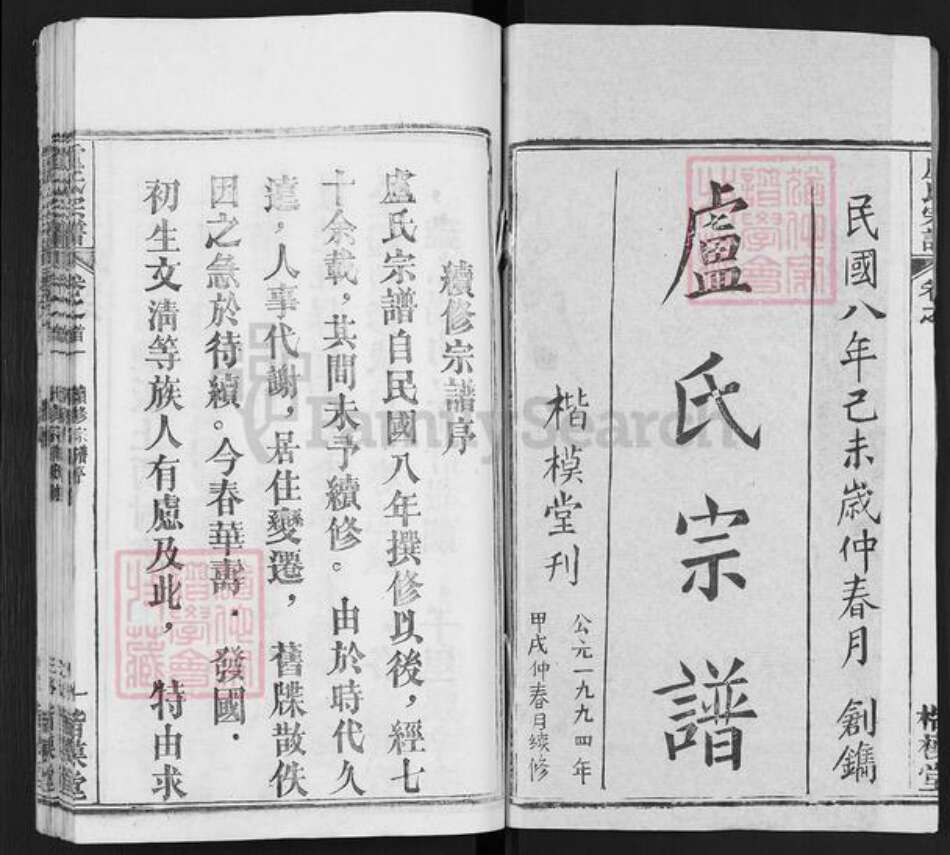 民國八年己未歲仲春月 創鐫
盧氏宗譜
楷模堂刊
公元一九九四年
甲戌仲春月续修
續修宗譜序
盧氏宗譜自民國八年撰修以後，經七
十余載，其間未予續修。由於時代久
遠，人事代謝，居住變遷，舊牒散佚
因之急於待續。今春華壽．發國．
初生文清等族人有慮及此，特由求
盧氏宗譜
卷之首
續修宗譜序
一
楷模堂
FamilySearch